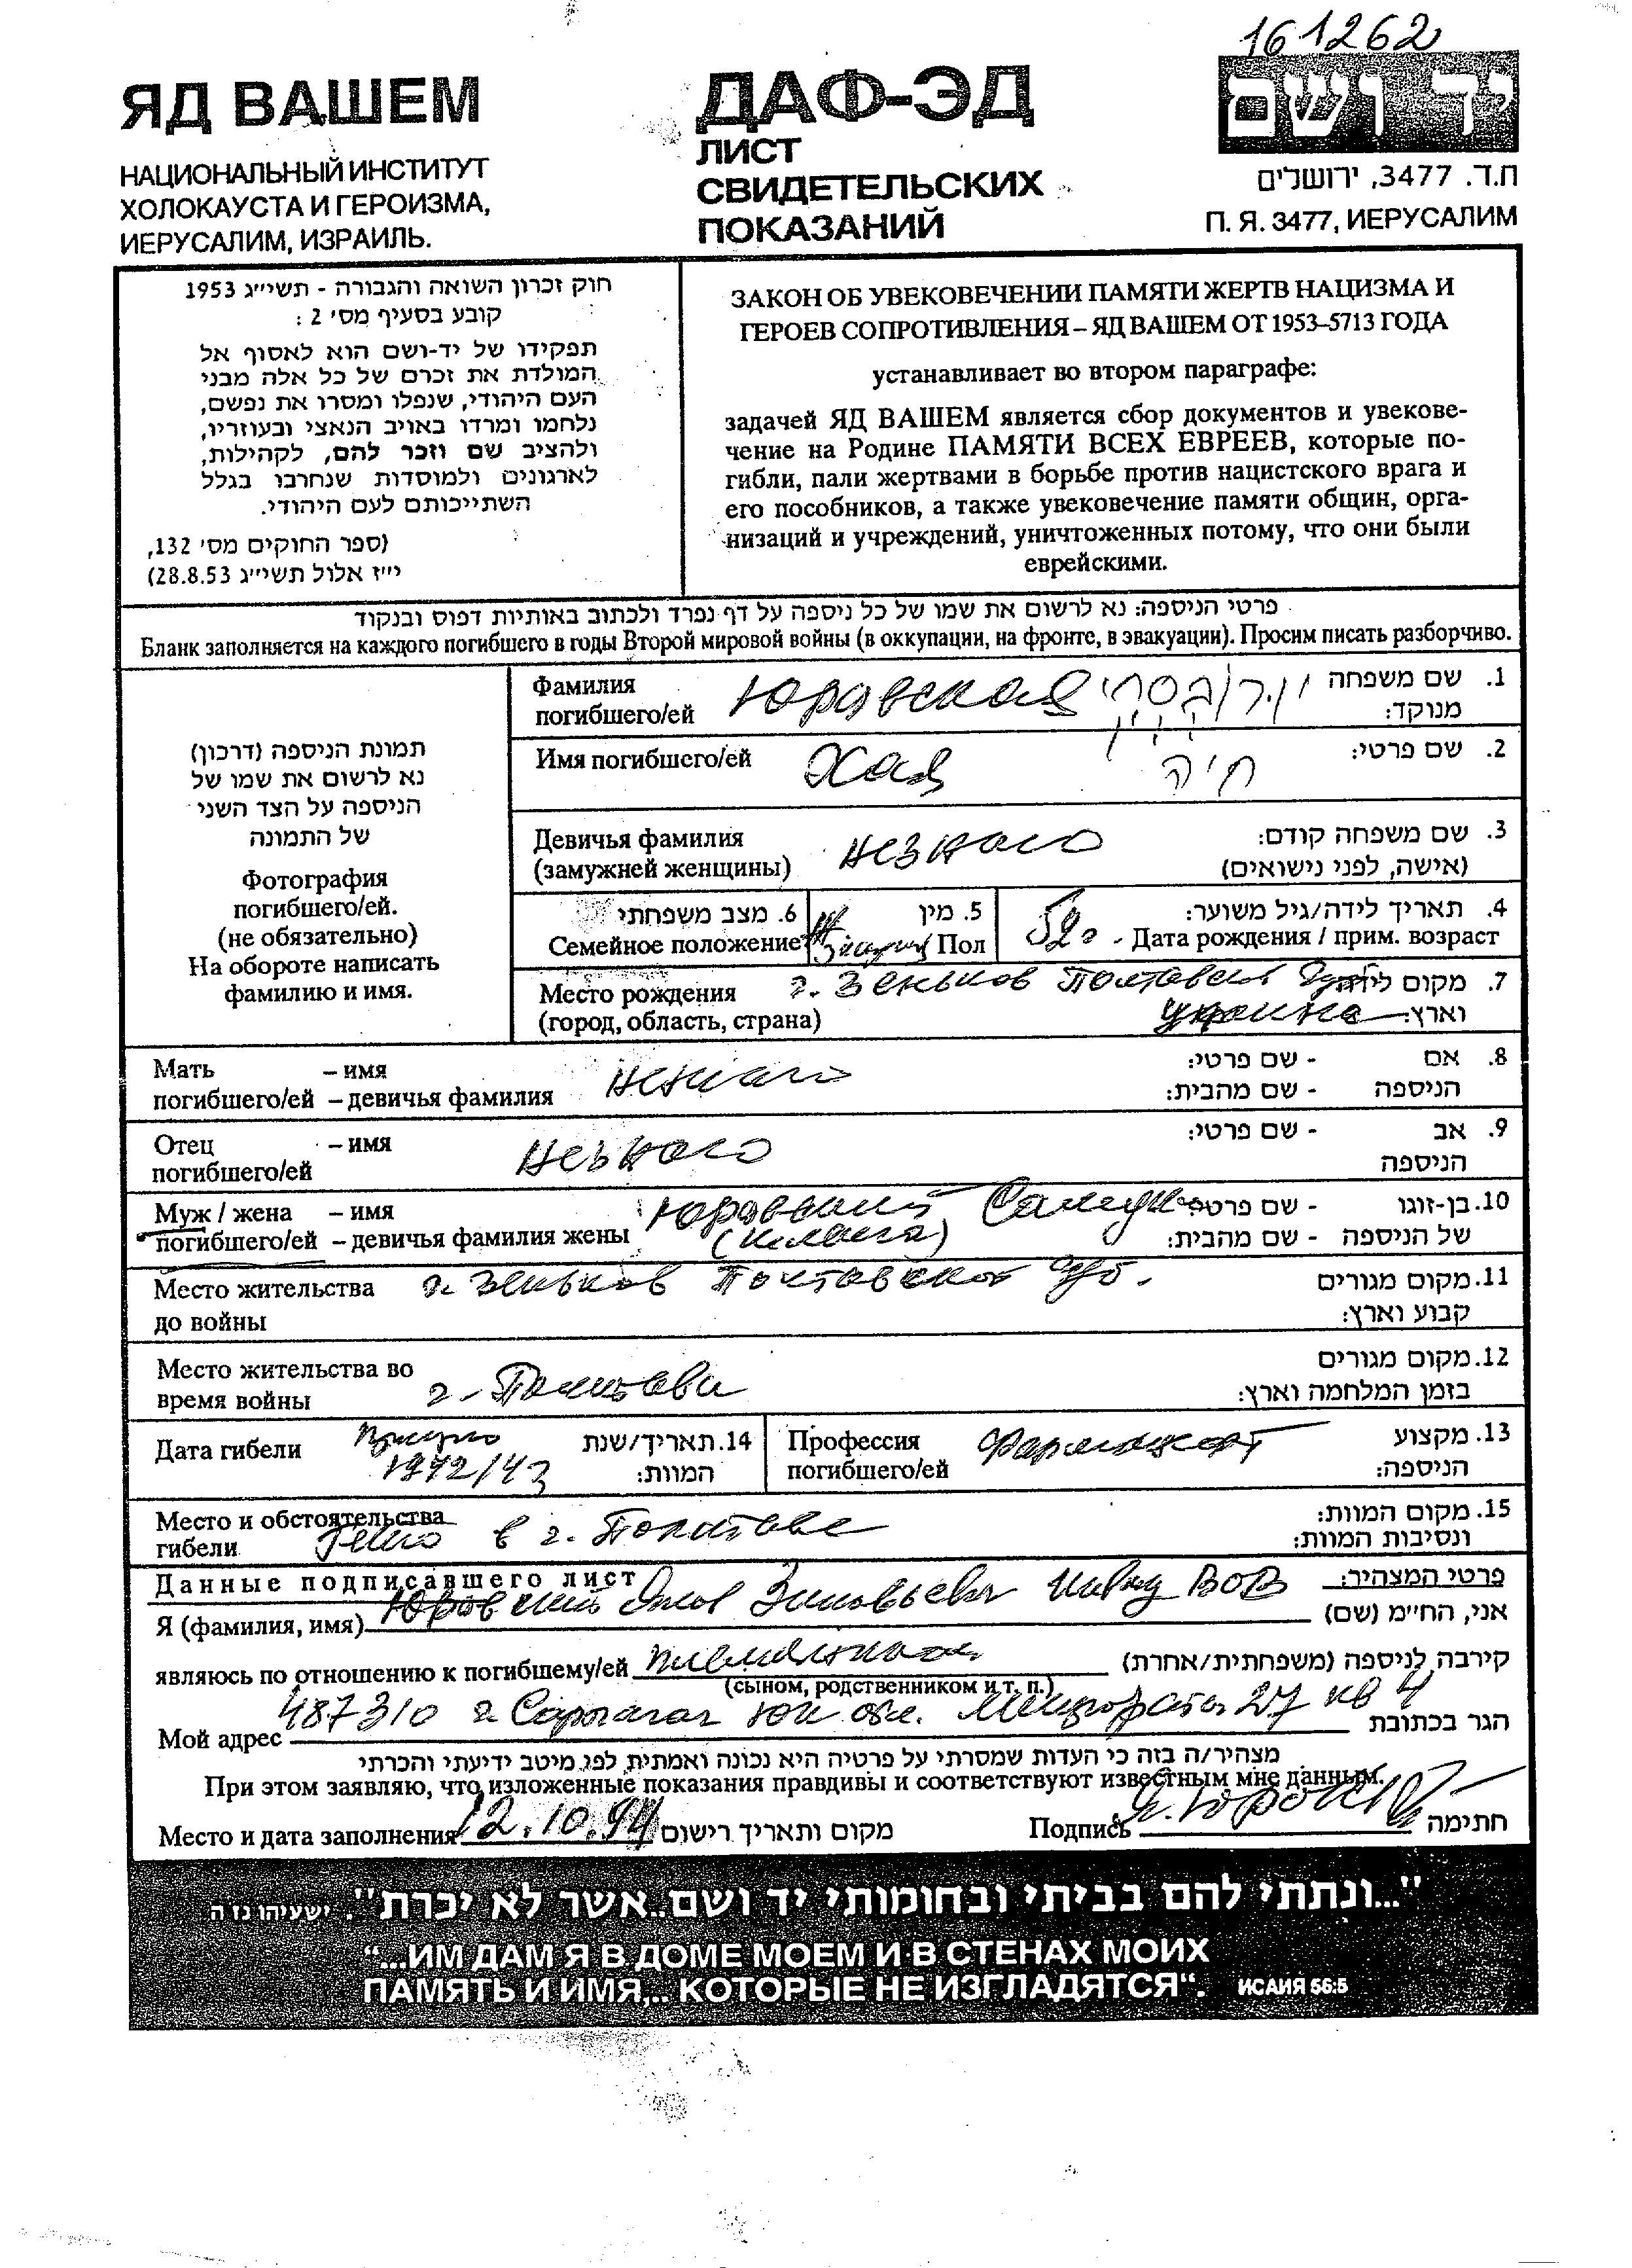 161262
ЯД ВАШЕМ
НАЦИОНАЛЬНЫЙ ИНСТИТУТ
ХОЛОКАУСТА И ГЕРОИЗМА,
ИЕРУСАЛИМ, ИЗРАИЛЬ.
ДАФ-ЭД
ЛИСТ
СВИДЕТЕЛЬСКИХ
ПОКАЗАНИЙ
יד ושם
ת.ד. 3477, ירושלים
П. Я. 3477, ИЕРУСАЛИМ
חוק זכרון השואה והגבורה - תשי״ג 1953
קובע בסעיף מס׳ 2 :
תפקידו של יד-ושם הוא לאסוף אל
המולדת את זכרם של כל אלה מבני
העם היהודי, שנפלו ומסרו את נפשם,
נלחמו ומרדו באויב הנאצי ובעוזריו,
ולהציב שם וזכר להם, לקהילות,
לארגונים ולמוסדות שנחרבו בגלל
השתייכותם לעם היהודי.
(ספר החוקים מס׳ 132,
י״ז אלול תשי״ג 28.8.53)
ЗАКОН ОБ УВЕКОВЕЧЕНИИ ПАМЯТИ ЖЕРТВ НАЦИЗМА И
ГЕРОЕВ СОПРОТИВЛЕНИЯ – ЯД ВАШЕМ ОТ 1953–5713 ГОДА
устанавливает во втором параграфе:
задачей ЯД ВАШЕМ является сбор документов и увекове-
чение на Родине ПАМЯТИ ВСЕХ ЕВРЕЕВ, которые по-
гибли, пали жертвами в борьбе против нацистского врага и
его пособников, а также увековечение памяти общин, орга-
низаций и учреждений, уничтоженных потому, что они были
еврейскими.
פרטי הניספה: נא לרשום את שמו של כל ניספה על דף נפרד ולכתוב באותיות דפוס ובנקוד
Бланк заполняется на каждого погибшего в годы Второй мировой войны (в оккупации, на фронте, в эвакуации). Просим писать разборчиво.
תמונת הניספה (דרכון)
נא לרשום את שמו של
הניספה על הצד השני
של התמונה
Фотография
погибшего/ей.
(не обязательно)
На обороте написать
фамилию и имя.
Фамилия погибшего/ей Юровская יורובסקי 1. שם משפחה מנוקד:
Имя погибшего/ей Хая חיה 2. שם פרטי:
Девичья фамилия (замужней женщины) незнаю 3. שם משפחה קודם: (אישה, לפני נישואים)
6. מצב משפחתי 5. מין 4. תאריך לידה/גיל משוער:
Семейное положение Пол 52 г. Дата рождения / прим. возраст
Место рождения г. Зеньков Полтавск 7. מקום
(город, область, страна) Украина וארץ:
Мать – имя 8. אם - שם פרטי:
погибшего/ей – девичья фамилия незнаю הניספה - שם מהבית:
Отец – имя незнаю 9. אב - שם פרטי:
погибшего/ей הניספה
Муж / жена – имя Юровский 10. בן-זוגו - שם פרטי:
погибшего/ей – девичья фамилия жены של הניספה - שם מהבית:
Место жительства г. Зеньков Полтавской губ. 11. מקום מגורים
до войны קבוע וארץ:
Место жительства во 12. מקום מגורים
время войны г. Полтава בזמן המלחמה וארץ:
Дата гибели 1942/43 14. תאריך/שנת המוות:
Профессия погибшего/ей Фармацевт 13. מקצוע הניספה:
Место и обстоятельства 15. מקום המוות:
гибели Гетто в г. Полтаве ונסיבות המוות:
Данные подписавшего лист פרטי המצהיר:
Я (фамилия, имя) Юровский Яков Зиновьевич Инвалид ВОВ אני, החי״מ (שם)
являюсь по отношению к погибшему/ей племянником קירבה לניספה (משפחתית/אחרת)
(сыном, родственником и т. п.)
Мой адрес 487310 г. Сарыагач обл. 27 кв 4 הגר בכתובת
מצהיר/ה בזה כי העדות שמסרתי על פרטיה היא נכונה ואמתית לפי מיטב ידיעתי והכרתי
При этом заявляю, что изложенные показания правдивы и соответствуют известным мне данным.
Место и дата заполнения 12.10.94 מקום ותאריך רישום Подпись Я. Юровский חתימה
"...ונתתי להם בביתי ובחומותי יד ושם..אשר לא יכרת". ישעיהו נז ה
“...ИМ ДАМ Я В ДОМЕ МОЕМ И В СТЕНАХ МОИХ
ПАМЯТЬ И ИМЯ,.. КОТОРЫЕ НЕ ИЗГЛАДЯТСЯ“. ИСАИЯ 56:5